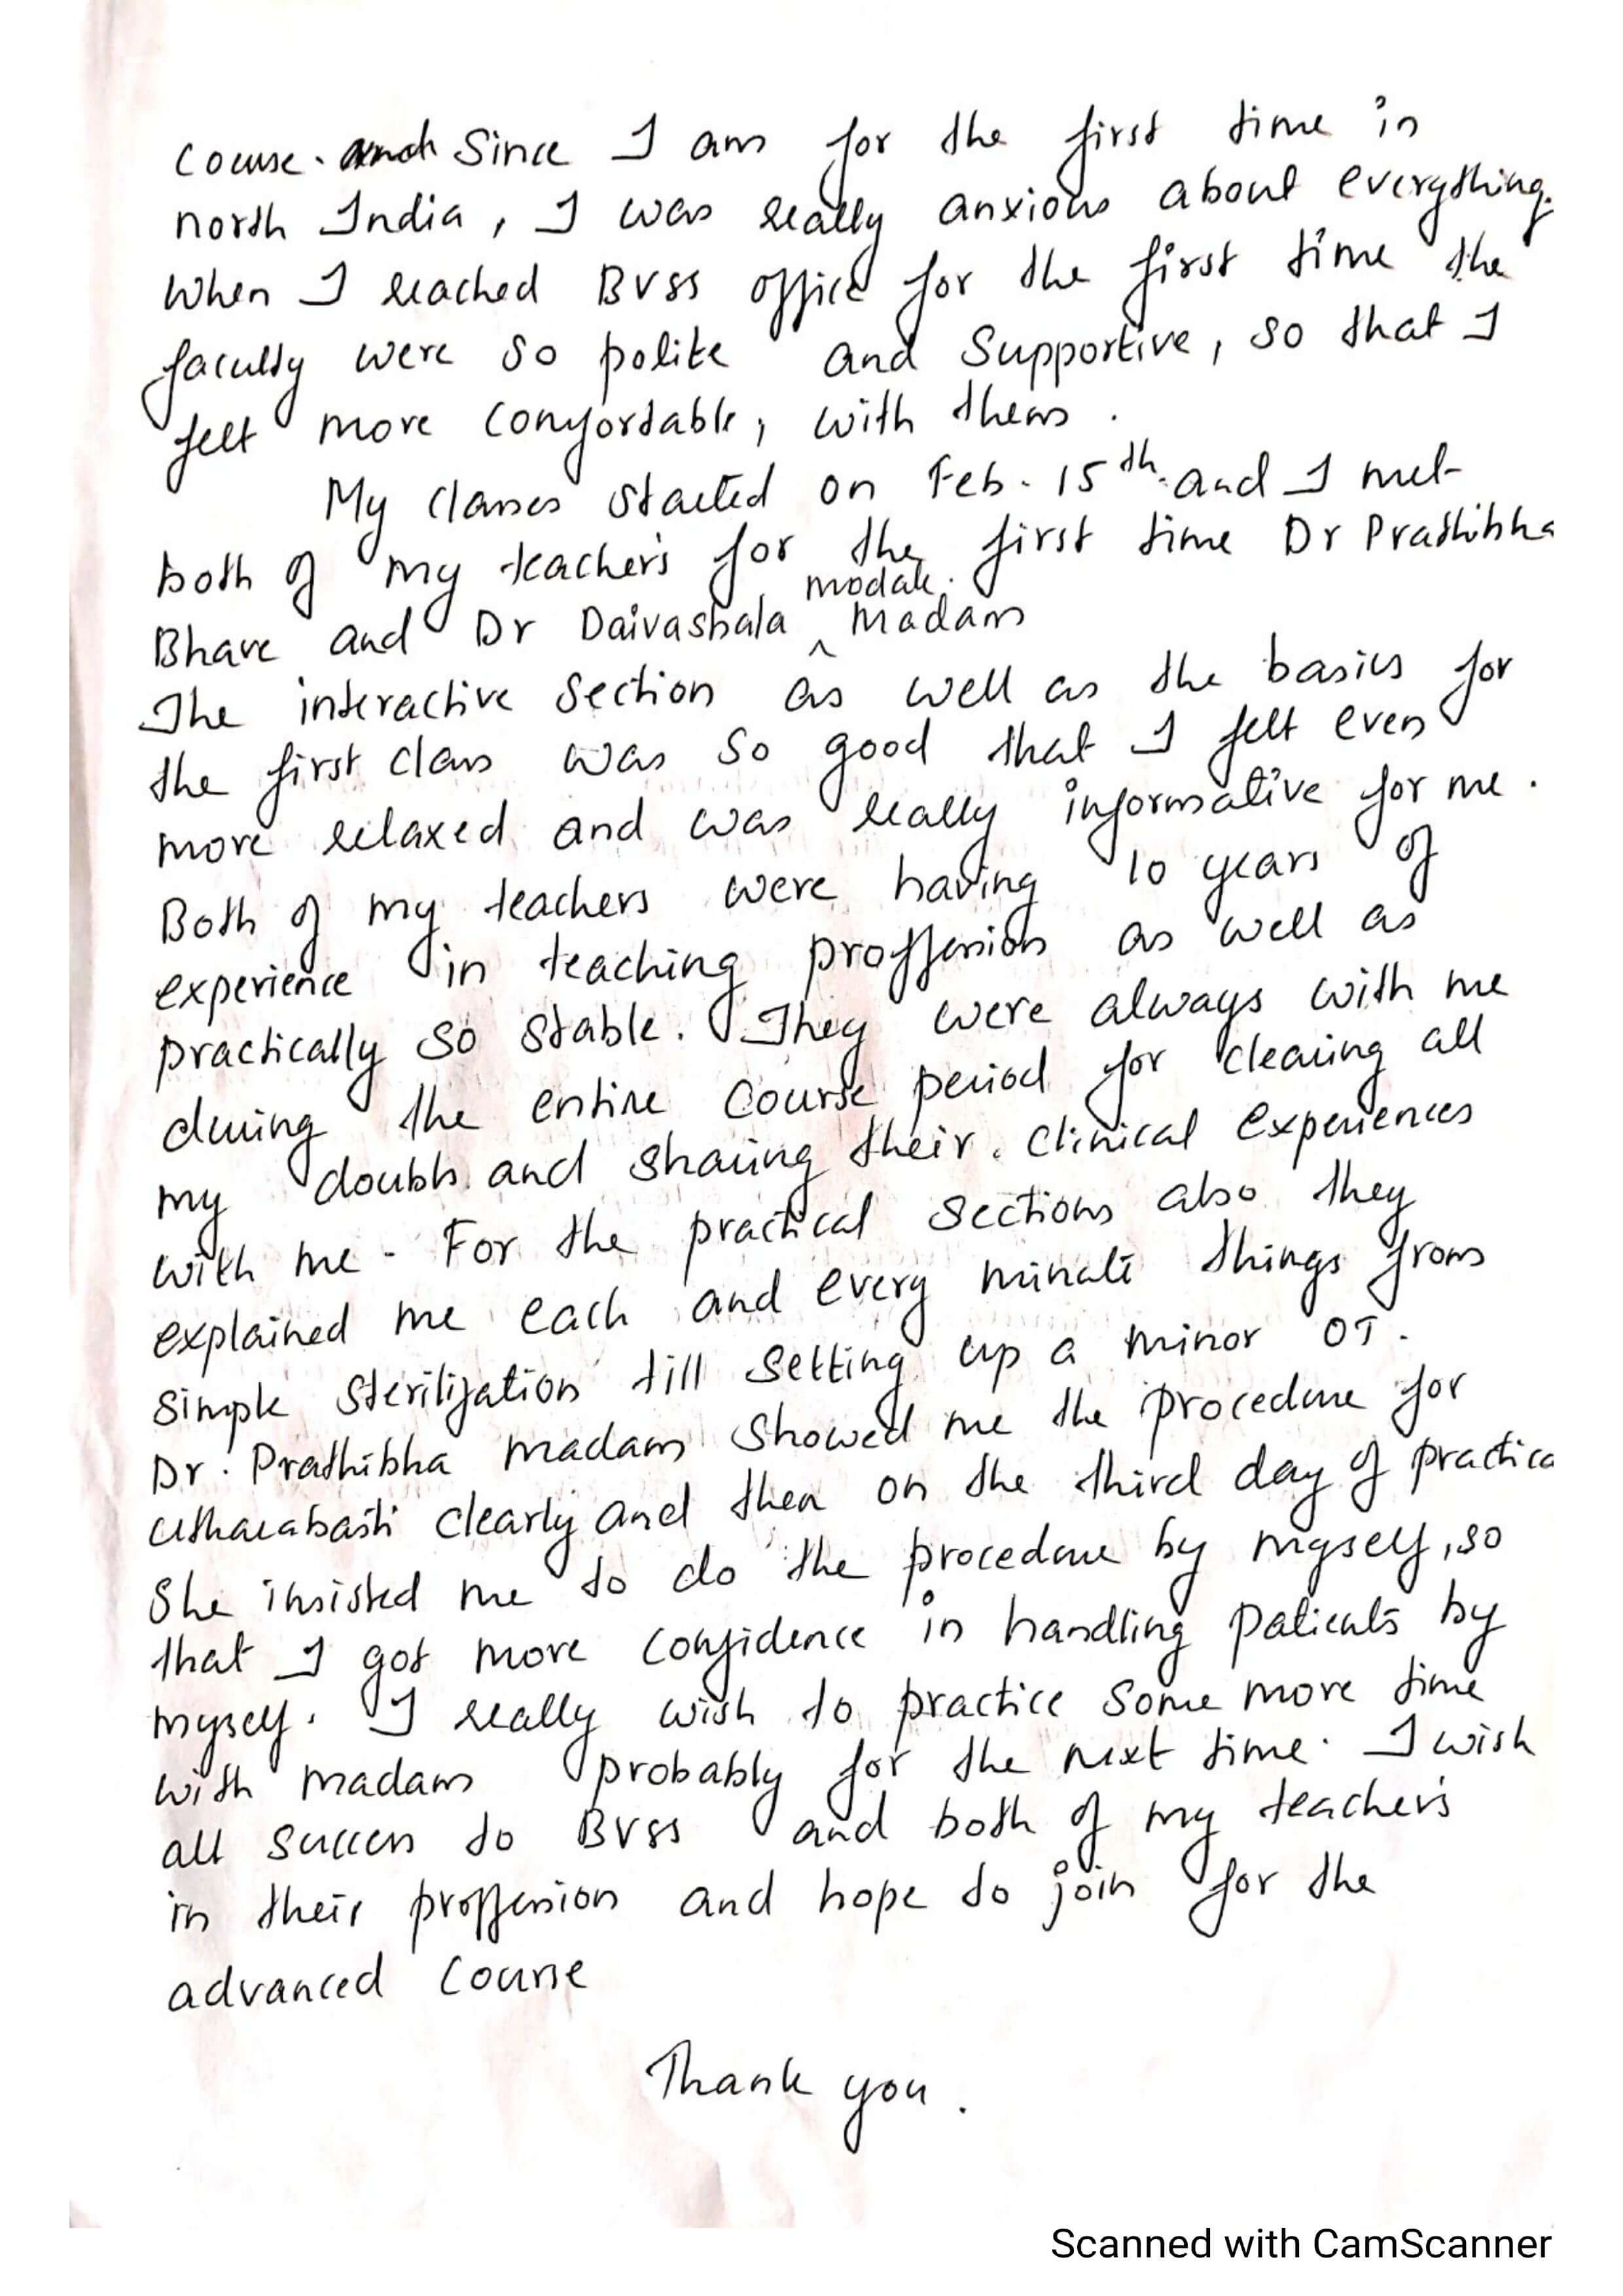 course. and Since I am for the first time in
north India, I was really anxious about everything.
when I reached BVSS office for the first time the
faculty were so polite and supportive, so that I
felt more comfortable, with them.
My classes started on Feb. 15th. and I met
both of my teachers for the first time Dr Prathibha
modak.
Bhave and Dr Daivashala Madam
The interactive section as well as the basics for
the first class was so good that I felt even
more relaxed and was really informative for me.
Both of my teachers were having 10 years of
experience in teaching proffession as well as
practically so stable. They were always with me
during the entire course period for clearing all
my doubts and sharing their clinical experiences
with me. For the practical sections also they
explained me each and every minute things from
simple sterilization till setting up a minor OT.
Dr. Prathibha madam showed me the procedure for
utharabasti clearly and then on the third day of practica
She insisted me to do the procedure by myself, so
that I got more confidence in handling patients by
myself. I really wish to practice some more time
with madam probably for the next time. I wish
all success to BVSS and both of my teachers
in their proffession and hope to join for the
advanced course
Thank you.
Scanned with CamScanner